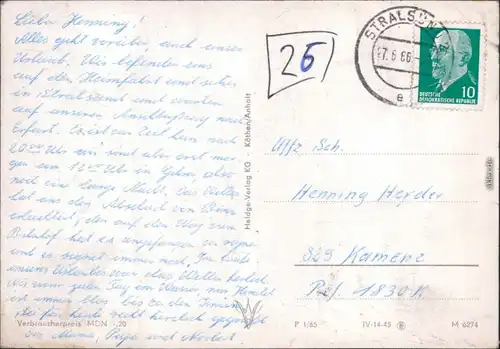 Lieber Henning!
Alles geht vorüber, auch unser
Urlaub. Wir befinden uns
auf der Heimfahrt und sitzen
in Stralsund und warten
auf unseren Anschlußzug nach
Erfurt. Es ist zur Zeit kurz nach
20.00 Uhr wir sind aber erst mor-
gen um Uhr in Gera, also
noch eine lange Nacht. Das Wetter
hat uns den Abschied von Binz
erleichtert, denn auf dem Weg zum
Bahnhof hat es angefangen zu regnen
und es regnet immer noch. Im Laufe
unseres Urlaubes war das Wetter herrlich.
Wir waren jeden Tag am Wasser nur
immer
Sei für heute recht herzlich gegrüßt
von Mama, Papa und Norbert
Verbraucherpreis MDN -,20
Heldge-Verlag KG · Köthen/Anhalt
26
STRALSUND
7.6.66
e
DEUTSCHE
DEMOKRATISCHE REPUBLIK
10
Uffz Sch.
Henning Heyder
829 Kamenz
Psf. 1830-K
P 1/65 IV-14-45 M 6274